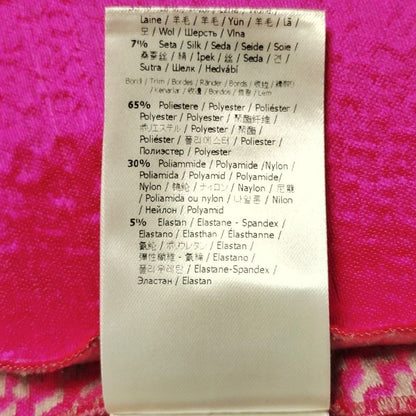 Laine / 羊毛 / 羊毛 / Yün / 羊毛 / Lã /
모 / Wol / Шерсть / Vlna
7% Seta / Silk / Seda / Seide / Soie /
桑蚕丝 / 絹 / İpek / 丝 / Seda / 견 /
Sutra / Шелк / Hedvábí
Bordi / Trim / Bordes / Ränder / Bords /
/ Kenarlar / / Bordos / / Lem
65% Poliestere / Polyester / Poliéster /
Polyester / Polyester / 聚酯纤维 /
ポリエステル / Polyester / 聚酯 /
Poliéster / 폴리에스터 / Polyester /
Полиэстер / Polyester
30% Poliammide / Polyamide /Nylon /
Poliamida / Polyamid / Polyamide/
Nylon / 锦纶 / ナイロン / Naylon / 尼龍
/ Poliamida ou nylon / 나일론 / Nilon
/ Нейлон / Polyamid
5% Elastan / Elastane - Spandex /
Elastano / Elasthan / Élasthanne /
氨纶 / ポリウレタン / Elastan /
彈性纖維 - 氨綸 / Elastano /
폴리우레탄 / Elastane-Spandex /
Эластан / Elastan